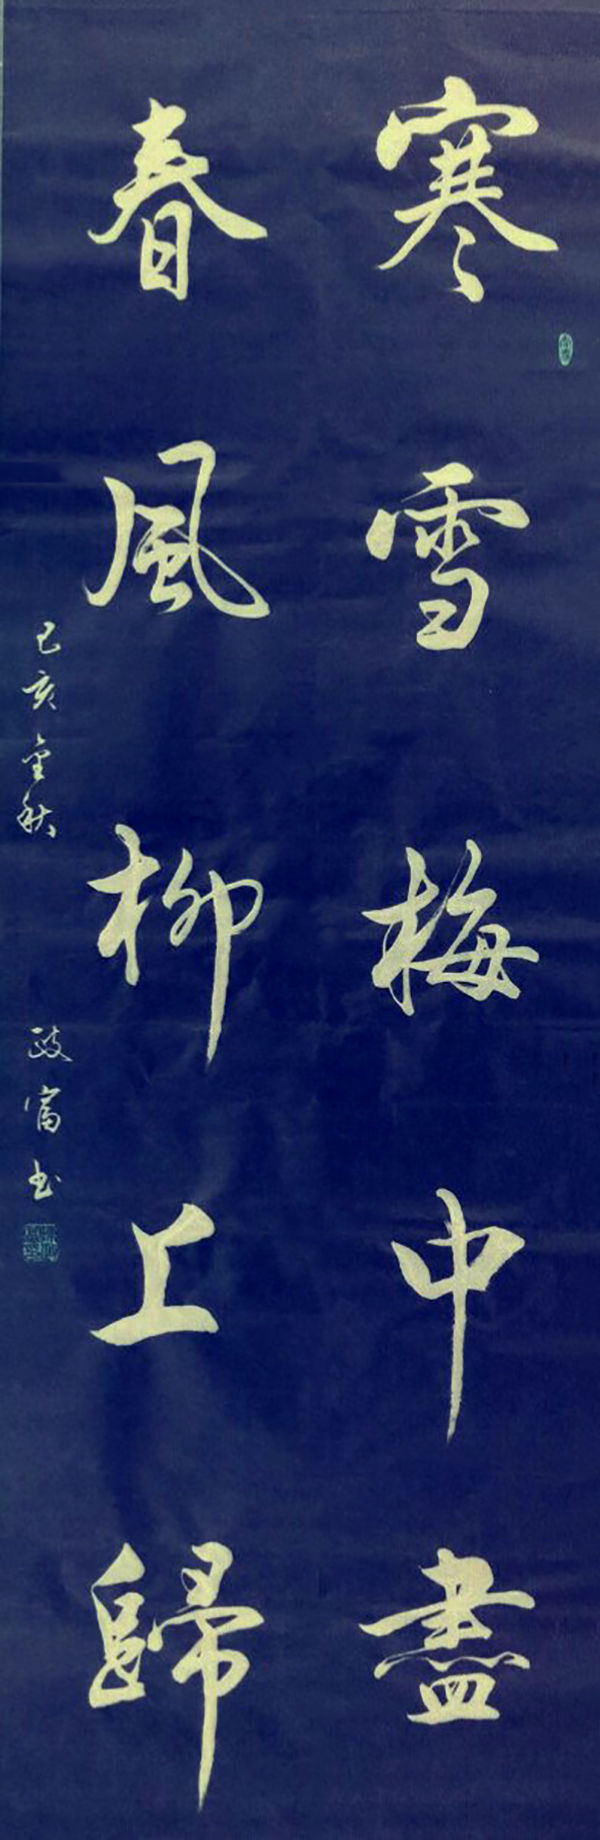 寒雪梅中盡
春風柳上歸
己亥金秋
政富书